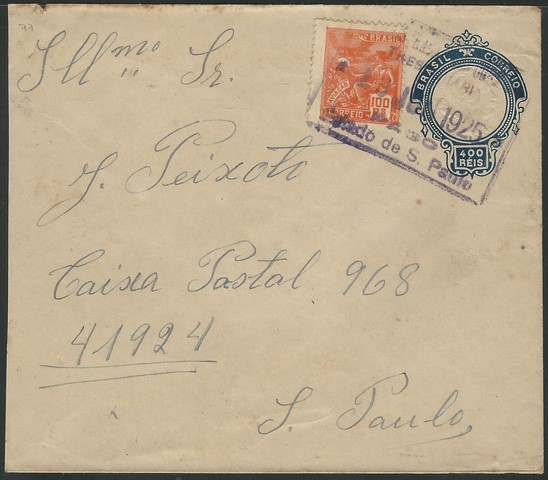 77
Illmo Sr.
J. Peixoto
Caixa Postal 968
41924
S. Paulo
BRASIL
AVIAÇÃO
100 Rs
CORREIO
BRASIL CORREIO
400
RÉIS
1925
Estado de S. Paulo